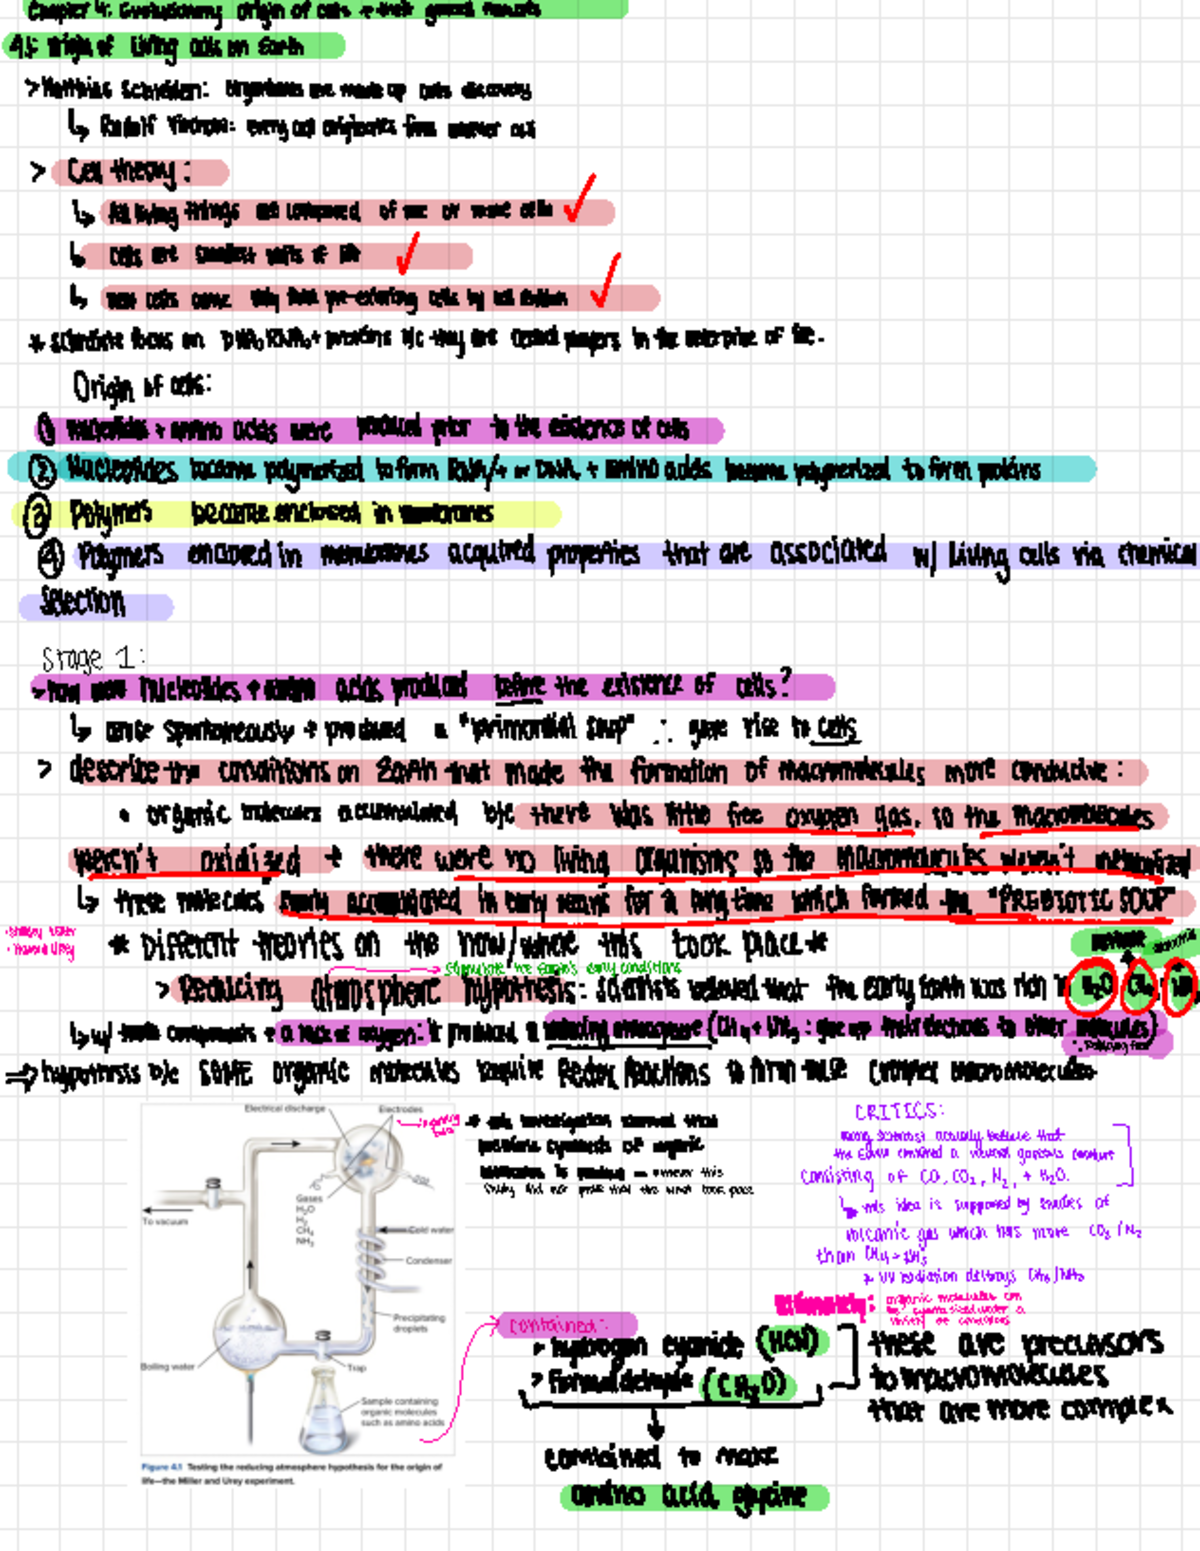 Chapter 4: Evolutionary origin of cells + their general features
4.1: Origin of Living cells on Earth
> Matthias Schleiden: organisms are made up cells discovery
↳ Rudolf Virchow: every cell originates from another cell
> Cell theory:
↳ All living things are composed of one or more cells ✓
↳ cells are smallest units of life ✓
↳ new cells come only from pre-existing cells by cell division ✓
* scientists focus on DNA, RNA, + proteins b/c they are central players in the enterprise of life.
Origin of cells:
① nucleotides + amino acids were produced prior to the existence of cells
② Nucleotides became polymerized to form RNA/+ or DNA + amino acids became polymerized to form proteins
③ Polymers became enclosed in membranes
④ Polymers enclosed in membranes acquired properties that are associated w/ living cells via chemical
selection
Stage 1:
how were nucleotides + amino acids produced before the existence of cells?
↳ arise spontaneously + produced a "primordial soup" ∴ gave rise to cells
> describe the conditions on Earth that made the formation of macromolecules more conducive:
• organic molecules accumulated b/c there was little free oxygen gas, so the macromolecules
weren't oxidized + there were no living organisms so the macromolecules weren't metabolized
↳ these molecules slowly accumulated in early oceans for a long time which formed the "PREBIOTIC SOUP"
* Different theories on the how/where this took place *
Stanley Miller
Harold Urey
methane
ammonia
simulate the Earth's early conditions
> Reducing atmosphere hypothesis: scientists believed that the early Earth was rich in H₂O CH₄ NH₃
↳ w/ these components + a lack of oxygen: it produced a reducing atmosphere (CH₄ + NH₃: give up their electrons to other molecules)
⇒ hypothesis b/c SOME organic molecules require Redox Reactions to form these complex macromolecules
Electrical discharge
Electrodes
Gases
H₂O
H₂
CH₄
NH₃
To vacuum
Cold water
Condenser
Precipitating droplets
Boiling water
Trap
Sample containing organic molecules such as amino acids
Figure 4.1 Testing the reducing atmosphere hypothesis for the origin of
life—the Miller and Urey experiment.
* investigation showed that
synthesis of organic
molecules is possible — however this
study did not prove that this took place
CRITICS:
many scientists actually believe that
the Earth
consisting of CO, CO₂, N₂, + H₂O.
↳ this idea is supported by studies of
volcanic gas which has more CO₂/N₂
than CH₄ + NH₃
> UV radiation destroys CH₄/NH₃
Ultimately: organic molecules can
be synthesized under a
variety of conditions
contained:
> hydrogen cyanide (HCN)
> Formaldehyde (CH₂O)
these are precursors
to macromolecules
that are more complex
combined to make
amino acid, glycine